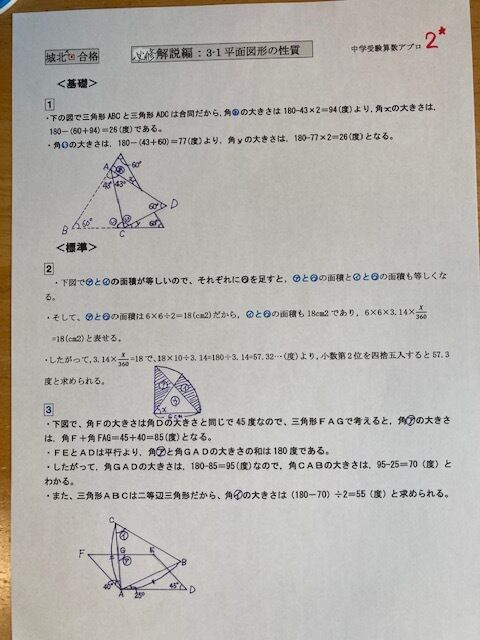 城北中合格
必修 解説編：3-1 平面図形の性質
中学受験算数アプロ
2*
＜基礎＞
1
・下の図で三角形ABCと三角形ADCは合同だから，角あの大きさは 180-43×2=94(度)より，角xの大きさは，
180-(60+94)=26(度)である。
・角うの大きさは，180-(43+60)=77(度)より，角yの大きさは，180-77×2=26(度)となる。
A 60°
43° 43°
60° D
B 60° C y 60°
＜標準＞
2
・下図で㋐と㋑の面積が等しいので、それぞれに㋒を足すと，㋐と㋒の面積と㋑と㋒の面積も等しくな
る。
・そして、㋐と㋒の面積は6×6÷2=18(cm2)だから，㋑と㋒の面積も18cm2であり，6×6×3.14×x/360
=18(cm2)と表せる。
・したがって,3.14×x/360=18で,18×10÷3.14=180÷3.14=57.32…(度)より,小数第2位を四捨五入すると57.3
度と求められる。
㋐ ㋑
㋒
x
6cm
3
・下図で、角Fの大きさは角Dの大きさと同じで45度なので、三角形FAGで考えると，角㋐の大きさ
は，角F＋角FAG=45+40=85(度)となる。
・FEとADは平行より，角㋐と角GADの大きさの和は180度である。
・したがって，角GADの大きさは，180-85=95(度)なので，角CABの大きさは，95-25=70（度）と
わかる。
・また、三角形ABCは二等辺三角形だから、角㋑の大きさは（180-70）÷2=55（度）と求められる。
C
㋑
F G E
㋐ B
40° 25° 45°
A D